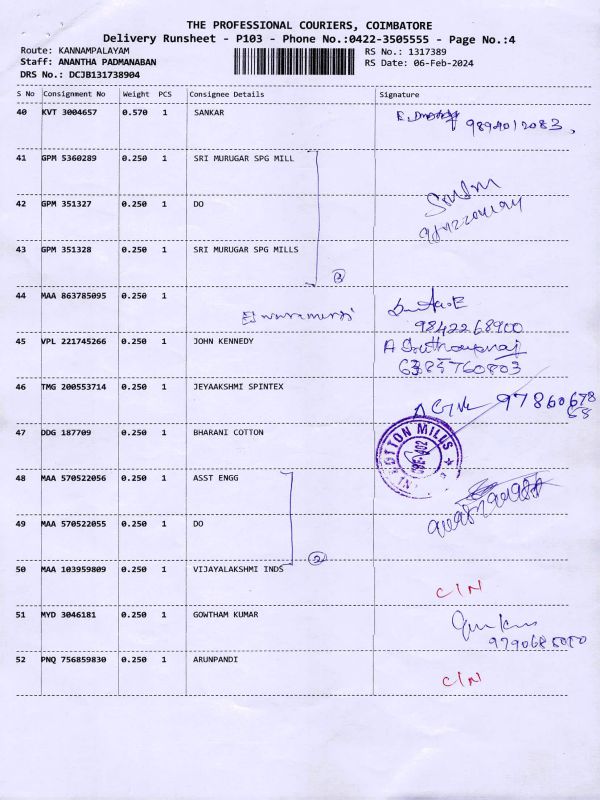 THE PROFESSIONAL COURIERS, COIMBATORE
Delivery Runsheet - P103 - Phone No.:0422-3505555 - Page No.:4
Route: KANNAMPALAYAM RS No.: 1317389
Staff: ANANTHA PADMANABAN RS Date: 06-Feb-2024
DRS No.: DCJB131738904
S No Consignment No Weight PCS Consignee Details Signature
40 KVT 3004657 0.570 1 SANKAR
9894012083,
41 GPM 5360289 0.250 1 SRI MURUGAR SPG MILL
42 GPM 351327 0.250 1 DO
43 GPM 351328 0.250 1 SRI MURUGAR SPG MILLS
3
44 MAA 863785095 0.250 1
9842268900
45 VPL 221745266 0.250 1 JOHN KENNEDY
6385760803
46 TMG 200553714 0.250 1 JEYAAKSHMI SPINTEX
97860678
68
47 DDG 187709 0.250 1 BHARANI COTTON
COTTON MILLS
48 MAA 570522056 0.250 1 ASST ENGG
49 MAA 570522055 0.250 1 DO
2
50 MAA 103959809 0.250 1 VIJAYALAKSHMI INDS
C/N
51 MYD 3046181 0.250 1 GOWTHAM KUMAR
9790685050
52 PNQ 756859830 0.250 1 ARUNPANDI
C/N